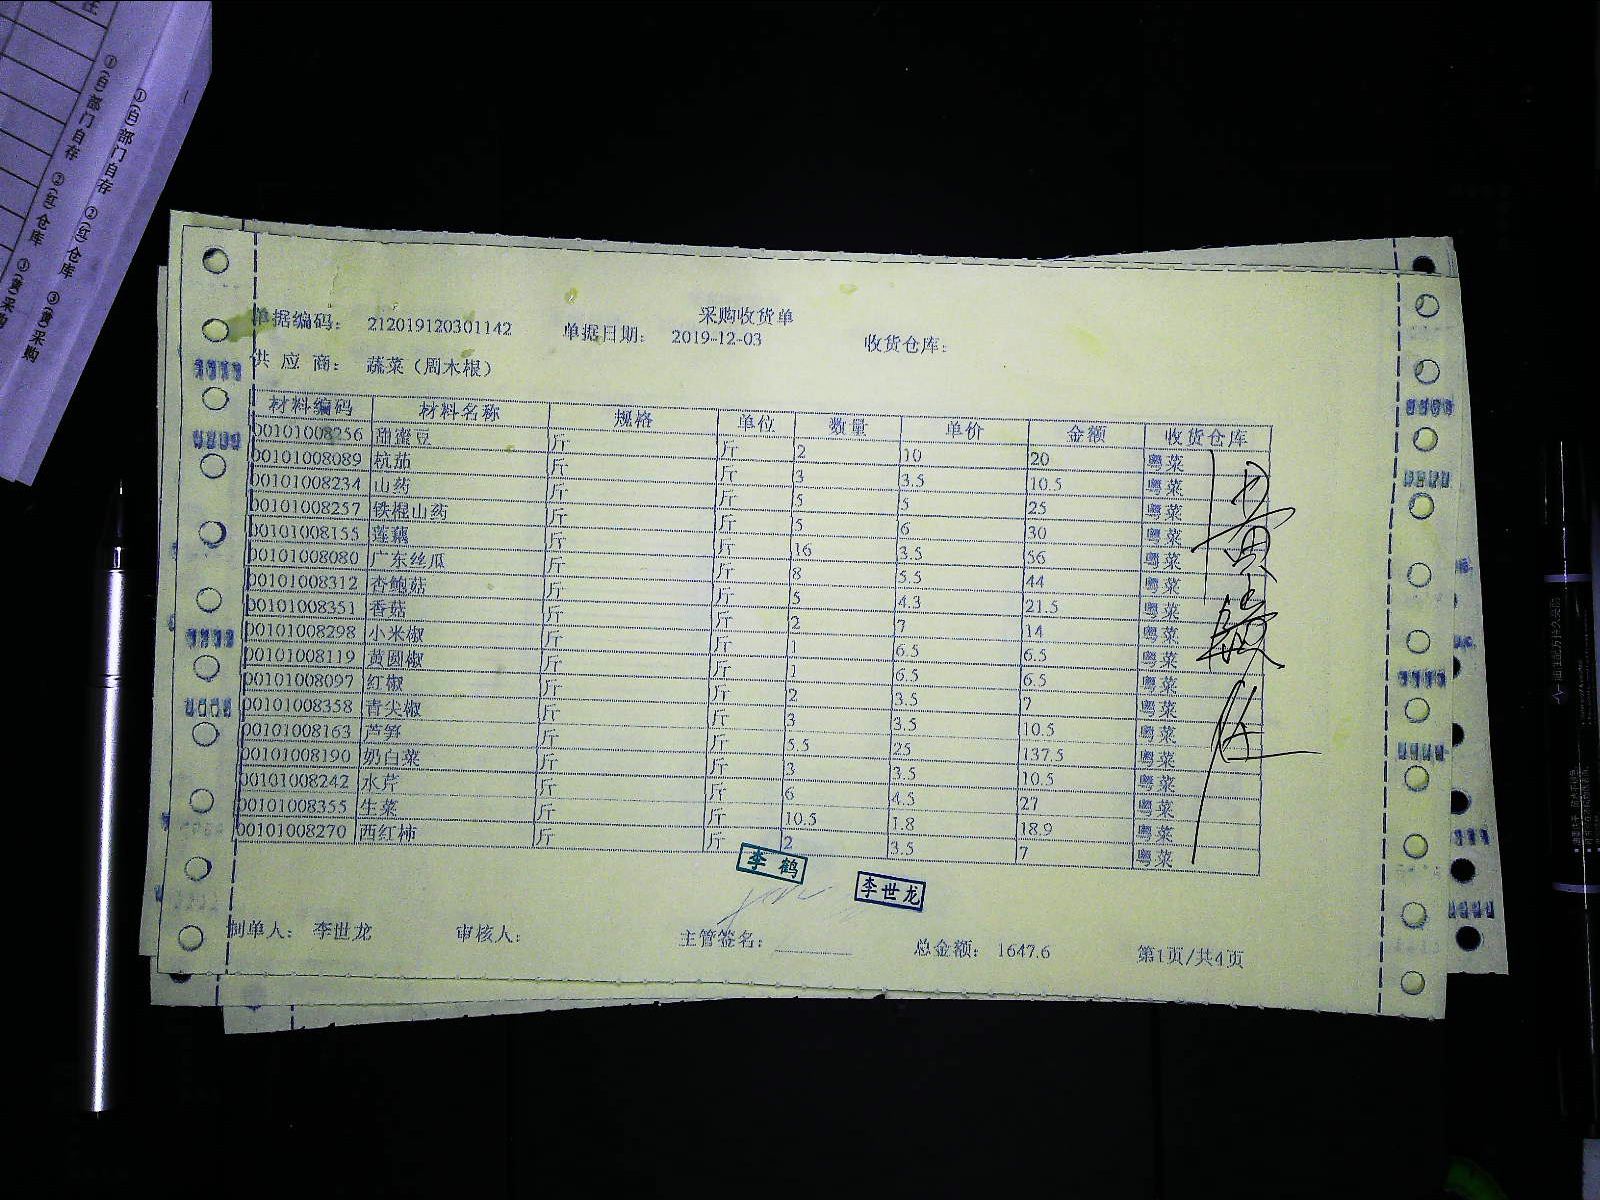 ①(白)部门自存 ②(红)仓库 ③(黄)采购
①(白)部门自存 ②(红)仓库 ③(黄)采购
采购收货单
单据编码: 212019120301142 单据日期: 2019-12-03 收货仓库:
供 应 商: 蔬菜(周木根)
材料编码 材料名称 规格 单位 数量 单价 金额 收货仓库
00101008256 甜蜜豆 斤 斤 2 10 20 粤菜
00101008089 杭茄 斤 斤 3 3.5 10.5 粤菜
00101008234 山药 斤 斤 5 5 25 粤菜
00101008257 铁棍山药 斤 斤 5 6 30 粤菜
00101008155 莲藕 斤 斤 16 3.5 56 粤菜
00101008080 广东丝瓜 斤 斤 8 5.5 44 粤菜
00101008312 杏鲍菇 斤 斤 5 4.3 21.5 粤菜
00101008351 香菇 斤 斤 2 7 14 粤菜
00101008298 小米椒 斤 斤 1 6.5 6.5 粤菜
00101008119 黄圆椒 斤 斤 1 6.5 6.5 粤菜
00101008097 红椒 斤 斤 2 3.5 7 粤菜
00101008358 青尖椒 斤 斤 3 3.5 10.5 粤菜
00101008163 芦笋 斤 斤 5.5 25 137.5 粤菜
00101008190 奶白菜 斤 斤 3 3.5 10.5 粤菜
00101008242 水芹 斤 斤 6 4.5 27 粤菜
00101008355 生菜 斤 斤 10.5 1.8 18.9 粤菜
00101008270 西红柿 斤 斤 2 3.5 7 粤菜
李鹤
李世龙
制单人: 李世龙 审核人: 主管签名: 总金额: 1647.6 第1页/共4页